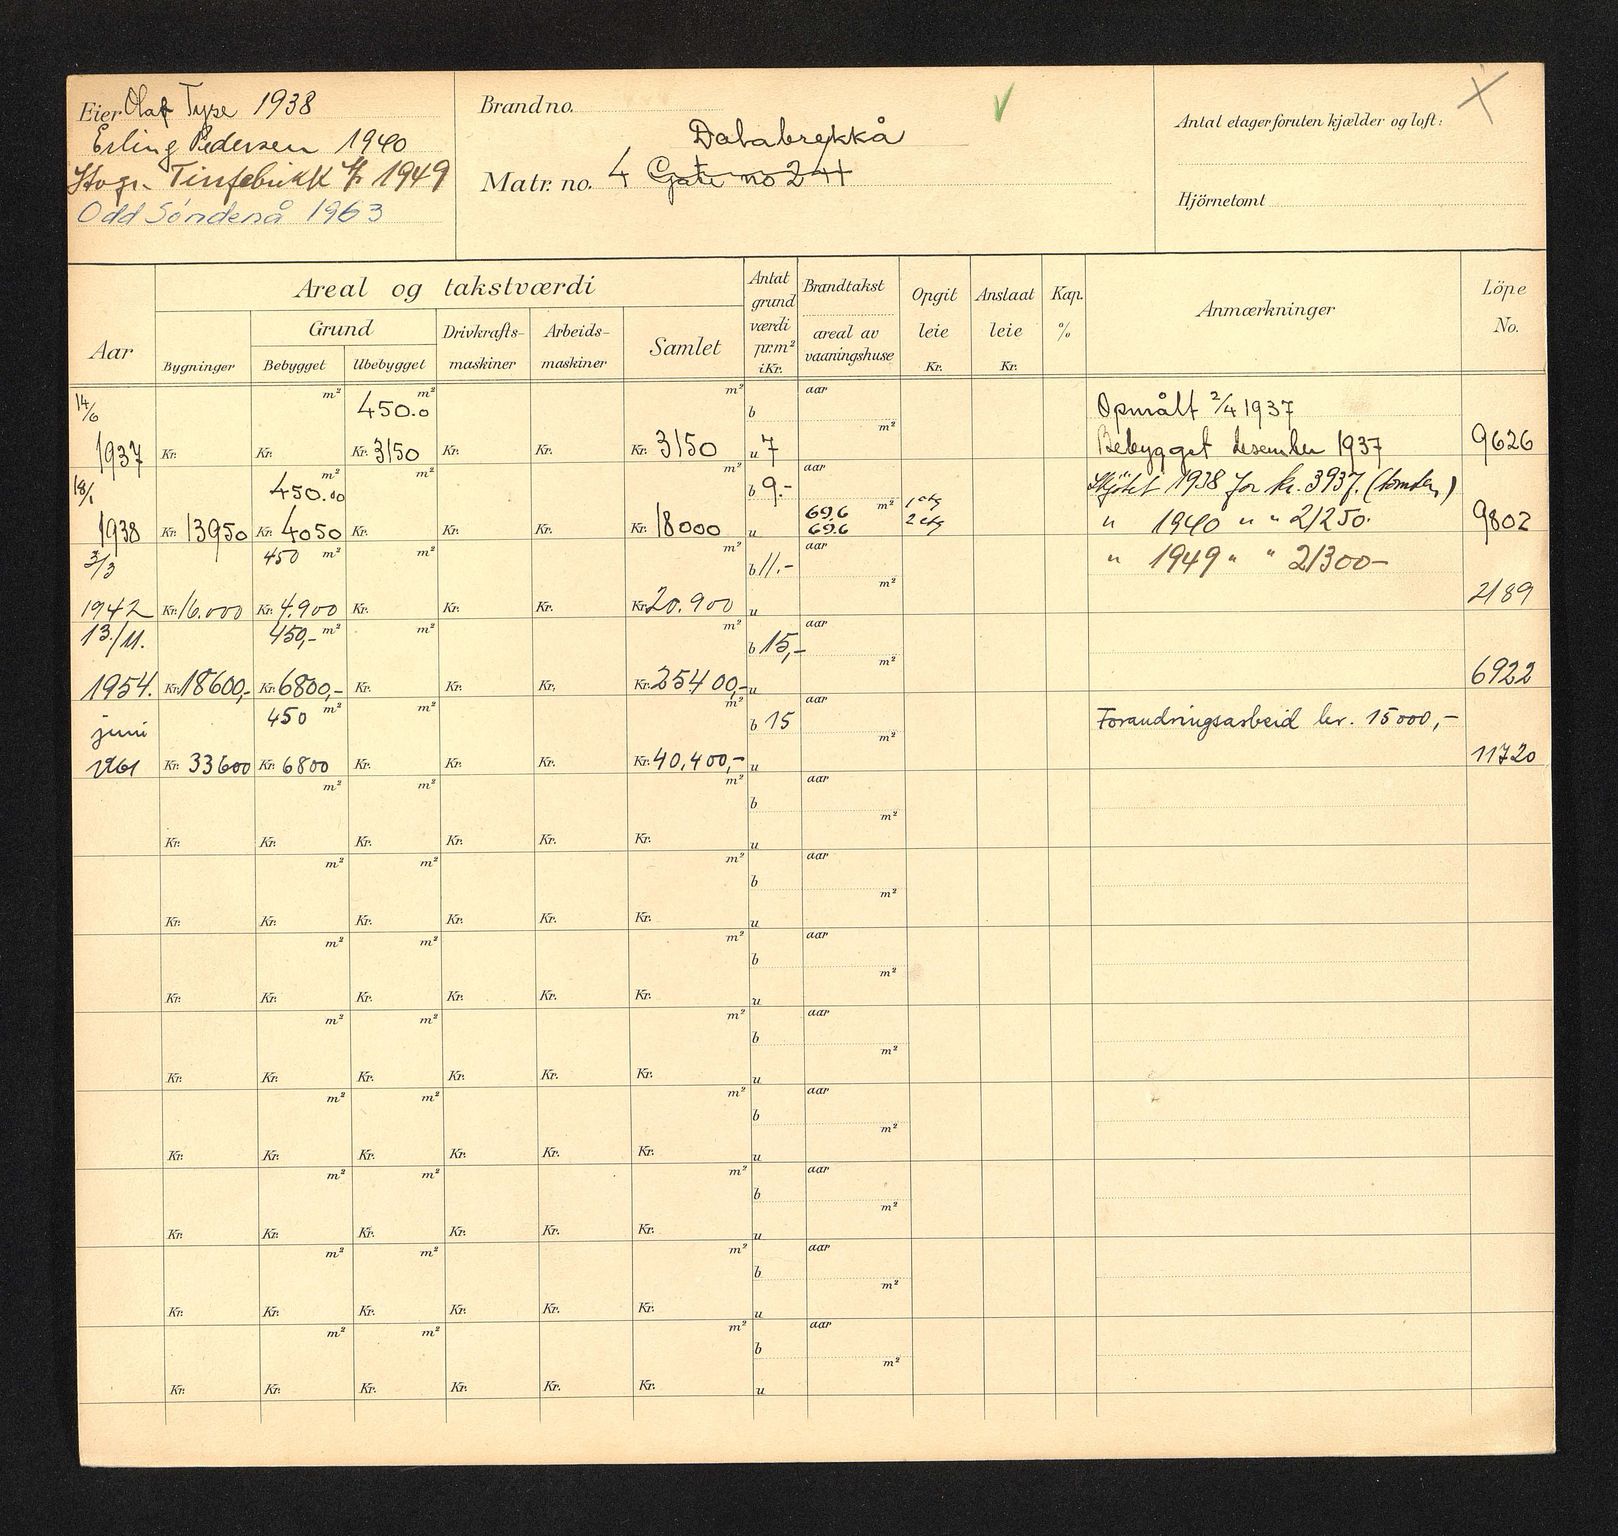 Eier Olaf Tyse 1938
Erling Pedersen 1940
1949
Odd Søndenå 1963
Brand no.
Dalabrekkå
Matr. no. 4 Gate no 241
Antal etager foruten kjælder og loft:
Hjörnetomt
Aar
Areal og takstværdi
Bygninger
Grund
Bebygget
Ubebygget
Drivkrafts-maskiner
Arbeids-maskiner
Samlet
Antat grund værdi pr.m² i Kr.
Brandtakst
areal av vaaningshuse
Opgit leie Kr.
Anslaat leie Kr.
Kap. %
Anmærkninger
Löpe No.
14/6 m² 450.0 m² m² b aar Opmålt 2/4 1937
1937 Kr. Kr. Kr. 3150 Kr. Kr. Kr. 3150 u 7 m² Bebygget desember 1937 9626
18/1 450.00 m² m² m² b 9.- aar Skjötet 1938 for kr. 3937. (tomten)
69.6 m² 1 etg
1938 Kr. 13950 Kr. 4050 Kr. Kr. Kr. Kr. 18000 u 69.6 2 etg " 1940 " " 21250. 9802
3/3 450 m² m² m² b 11.- aar " 1949 " " 21300-
1942 Kr. 16.000 Kr. 4.900 Kr. Kr. Kr. Kr. 20.900 u m² 2189
13./11. 450,- m² m² m² b 15,- aar
1954. Kr. 18600,- Kr. 6800,- Kr. Kr. Kr. Kr. 25400,- u m² 6922
juni 450 m² m² m² b 15 aar Forandringsarbeid kr. 15000,-
1961 Kr. 33600 Kr. 6800 Kr. Kr. Kr. Kr. 40,400,- u m² 11720
m² m² m² b aar
Kr. Kr. Kr. Kr. Kr. Kr. u m²
m² m² m² b aar
Kr. Kr. Kr. Kr. Kr. Kr. u m²
m² m² m² b aar
Kr. Kr. Kr. Kr. Kr. Kr. u m²
m² m² m² b aar
Kr. Kr. Kr. Kr. Kr. Kr. u m²
m² m² m² b aar
Kr. Kr. Kr. Kr. Kr. Kr. u m²
m² m² m² b aar
Kr. Kr. Kr. Kr. Kr. Kr. u m²
m² m² m² b aar
Kr. Kr. Kr. Kr. Kr. Kr. u m²
m² m² m² b aar
Kr. Kr. Kr. Kr. Kr. Kr. u m²